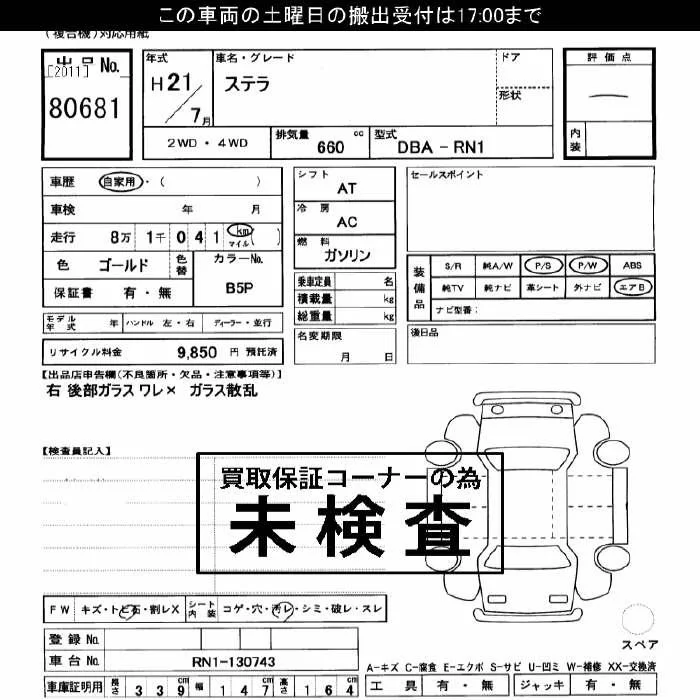 この車両の土曜日の搬出受付は17:00まで
(複合機)対応用紙
出品No.
[2011]
80681
年式
H21/7月
車名・グレード
ステラ
ドア
形状
評価点
内装
2WD・4WD
排気量 660 cc
型式 DBA-RN1
車歴 自家用・( )
車検 年 月
走行 8万 1千 0 4 1 km マイル( )
色 ゴールド 色替
カラーNo. B5P
保証書 有・無
シフト AT
冷房 AC
燃料 ガソリン
乗車定員 名
積載量 kg
総重量 kg
セールスポイント
装備品
S/R 純A/W P/S P/W ABS
純TV 純ナビ 革シート 外ナビ エアB
ナビ型番:
モデル年式 年 ハンドル 左・右 ディーラー・並行
名変期限 月 日
後日品
リサイクル料金 9,850 円 預託済
【出品店申告欄(不良箇所・欠品・注意事項等)】
右 後部ガラス ワレ× ガラス散乱
【検査員記入】
買取保証コーナーの為
未検査
FW キズ・トビ石・割レX シート内装 コゲ・穴・汚レ・シミ・破レ・スレ
登録No.
車台No. RN1-130743
スペア
A-キズ C-腐食 E-エクボ S-サビ U-凹ミ W-補修 XX-交換済
車庫証明用 長さ 339cm 幅 147cm 高さ 164cm
工具 有・無 ジャッキ 有・無